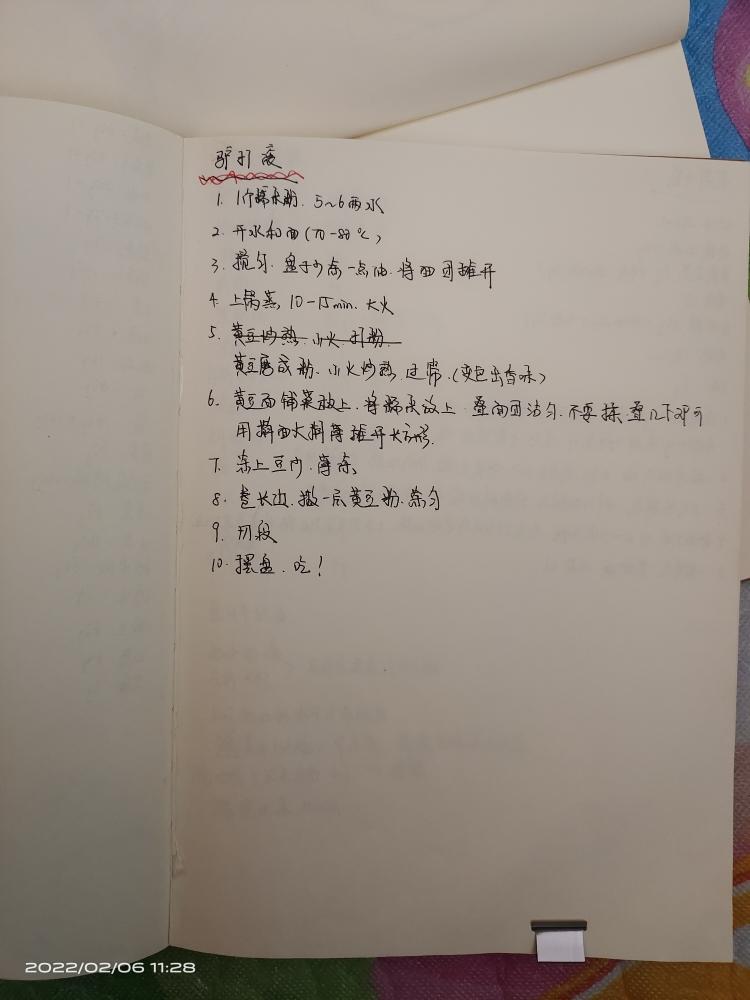 驴打滚
1. 1个糯米粉. 5~6两水
2. 开水和面(70-80℃)
3. 搅匀. 盘子少杂一点油. 将面团摊开
4. 上锅蒸, 10-15min. 大火
5. 黄豆炒熟. 小火. 打粉.
黄豆磨成粉. 小火炒熟. 过常. (变色出香味)
6. 黄豆面铺菜板上. 将糯米放上. 叠面团沾匀. 不要揉. 叠几下即可
用擀面大擀薄摊开长方形.
7. 涂上豆沙. 薄涂,
8. 卷长边. 撒一层黄豆粉. 涂匀
9. 切段
10. 摆盘. 吃!
2022/02/06 11:28